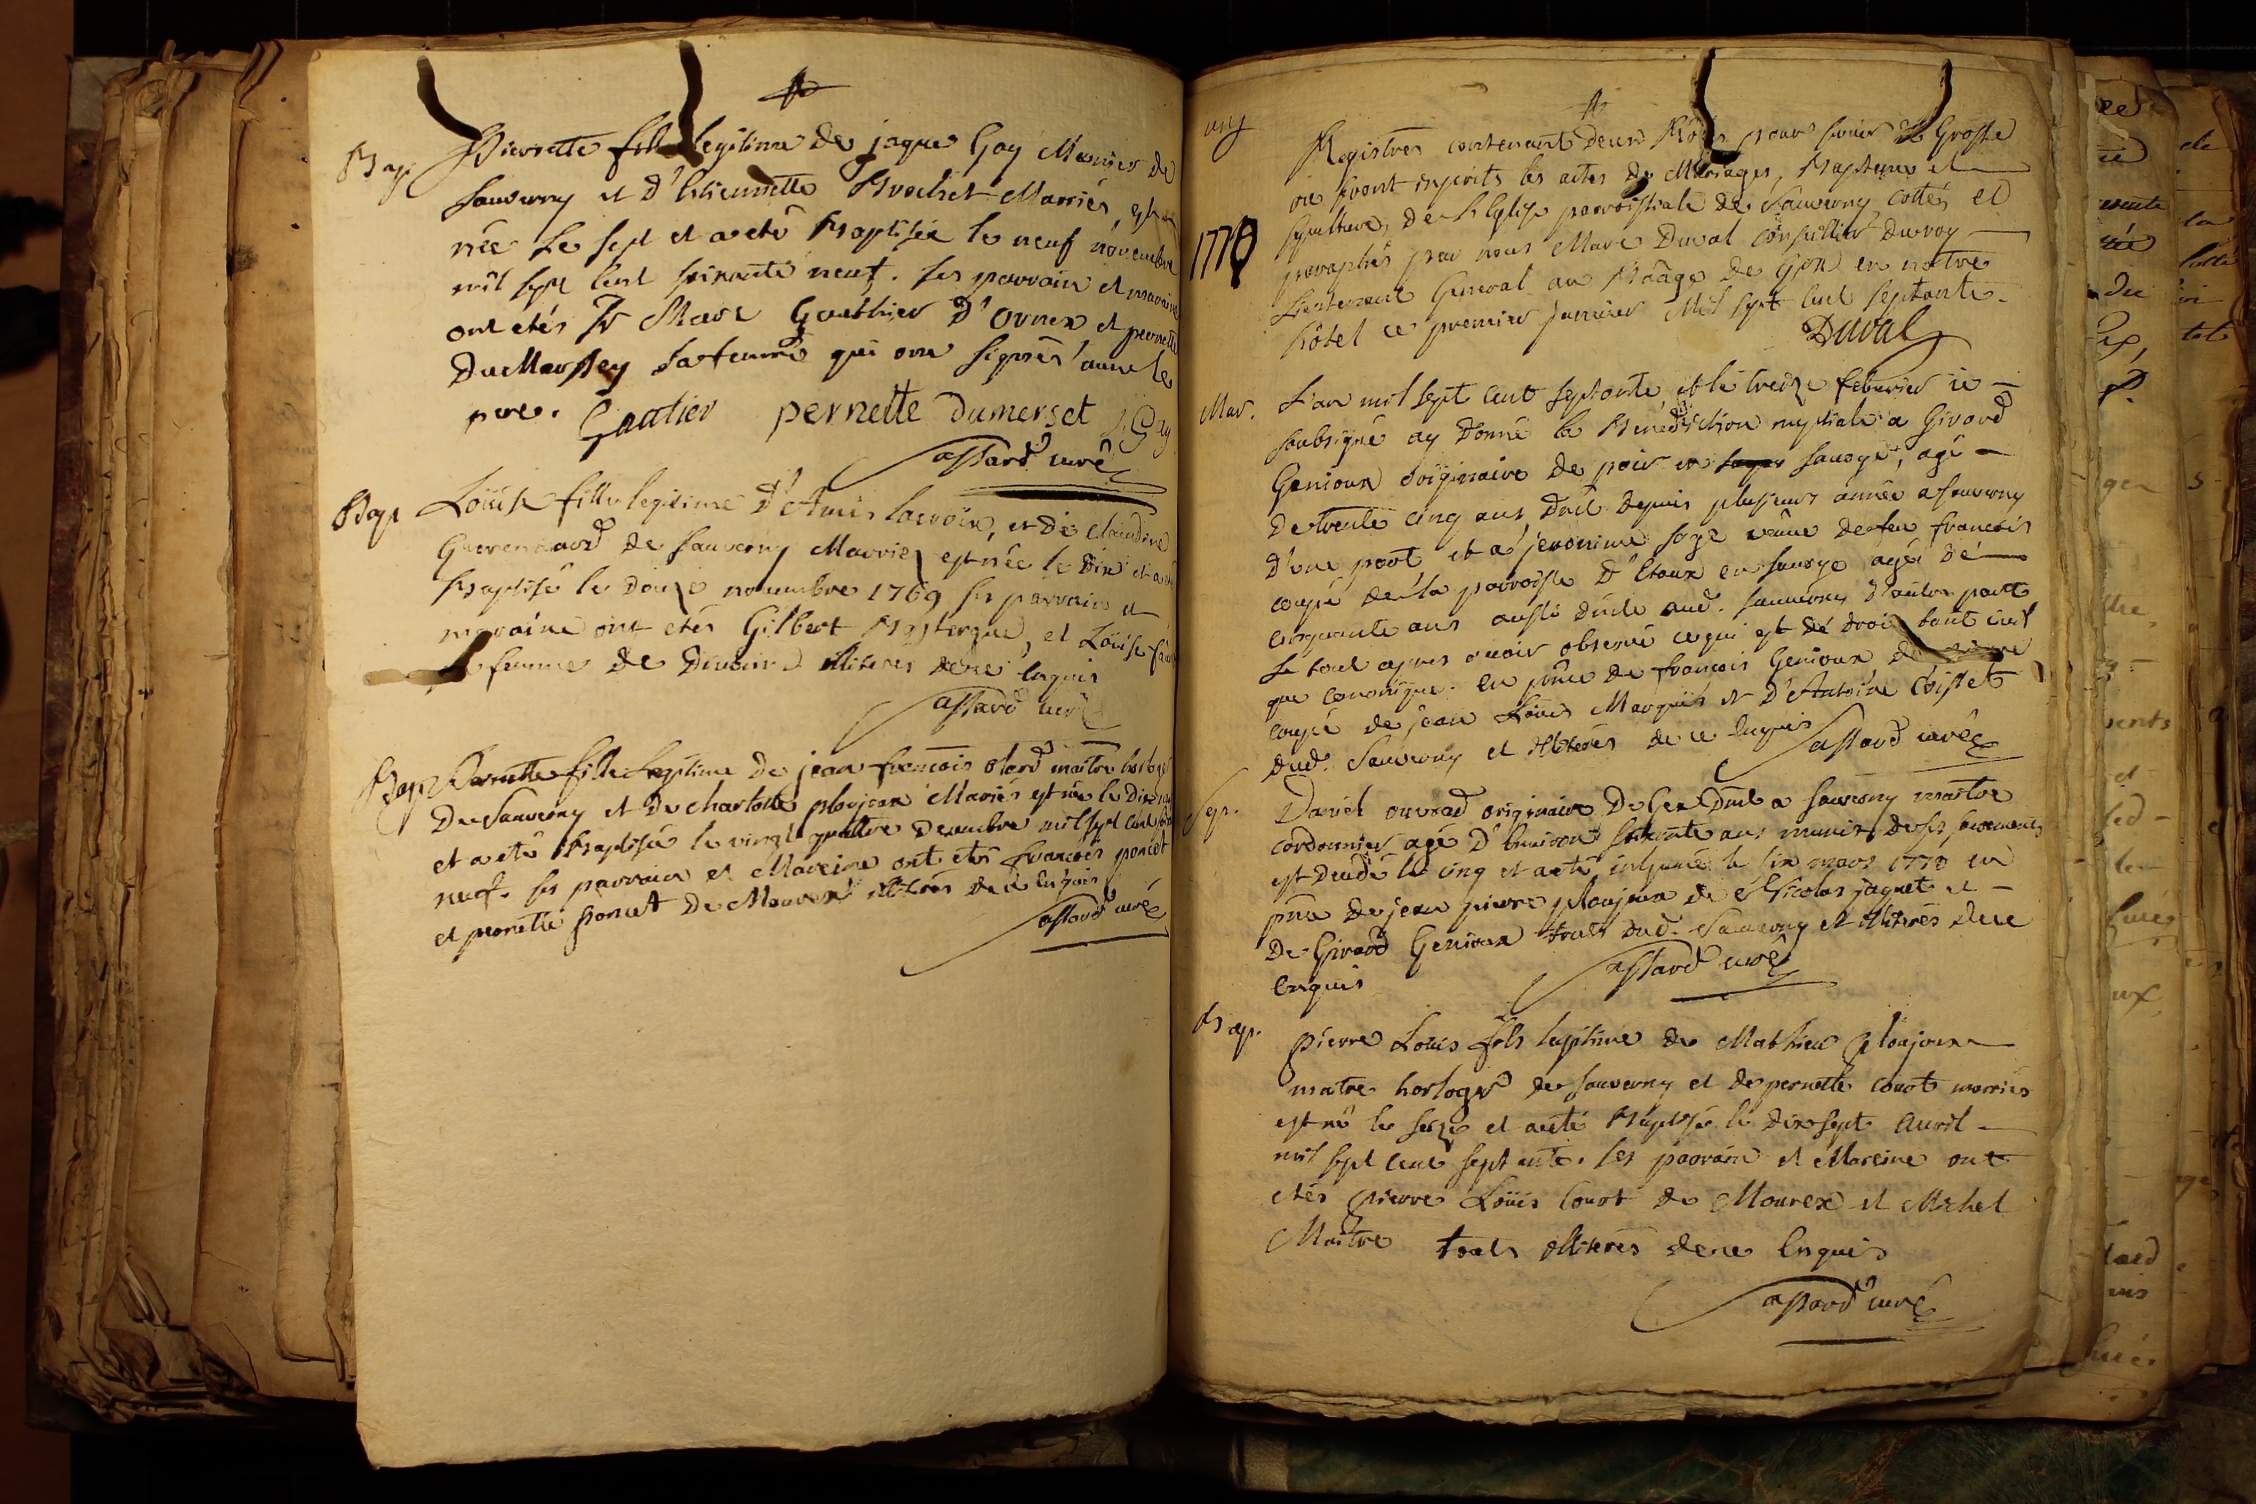 Bap
Pierrette fille legitime de jaque Gay Meunier de
Sauverny et d'Etiennette Brochet Marriés, est
née Le sept et a eté Baptisée le neuf novembre
mil sept cent soixante neuf. ses parrain et marraine
ont etés Sr Marc Gauthier d'Ornex et pernette
DuMarsey sa femme qui ont signés avec le
pere.
Gautier pernette dumerset J. Gay
assard curé
Bap
Loüise fille legitime d'Amis lacroix, et de Claudine
de Sauverny Marriez est née le Dix et a eté
Baptisé le douze novembre 1769 ses parrain et
maraine ont etés Gilbert et Loüise
sa femme de Divonne illiteres de ce Enquis
assard curé
Bap
Pernette fille legitime de jean françois olard maitre horloger
De Sauverny et De charlotte ploujoux Mariés est née le
et a eté Baptisée le vingt quattre decembre mil sept cent
neuf. ses parrain et Maraine ont etés françois poncet
et pernette poncet De Mourex illiterés de ce Enquis
assard curé
1770
Registres contenant deux Rôles pour servir de Grosse
ou seront inscrits les actes de Mariages, Baptemes et
sepulture, de L'Eglise parroissiale de Sauverny cottés et
paraphés par nous Marc Duval conseillier du roy
Lieutenant General au Baãge de Gex en nôtre
hôtel ce premier Janvier Mil sept cent septante.
Duval
Mar.
L'an mil sept cent septante et le treize febvrier je
soubsigné ay donné la Benediction nuptiale a Girard
Genioux originaire de en Savoye, agé
de trente cinq ans, Dt depuis plusieurs année a Sauverny
d'une part et a jeronime veuve de feu francois
coupé de la parroisse d' en Savoye agée de
cinquante ans aussi aud. Sauverny d'autre part
Le tout apres avoir observé ce qui est de droit tant civil
que canonique. En pñce de françois Genioux
coupé de jean Loüis Marquis et d'Antoine Coisset
dud. Sauverny et illiterés de ce Enquis
assard curé
Sep.
Daniel ouvrad originaire De Gex Dt a Sauverny maitre
cordonnier agé D'environ soixante ans munis de ses sacrements
est decedé le cinq et a eté inhumé le six mars 1770 en
pñce de jean pierre ploujoux de Nicolas jaquet et
De Girard Genioux touts dud. Sauverny et illiterés de ce
Enquis
assard curé
Bap.
pierre Loüis fils legitime de Mathieu Ploujoux
maitre horloger de Sauverny et de pernette Conot marriés
est né le seize et a eté Baptisé le dix sept Avril
mil sept cent septante. ses parrain et Maraine ont
etés pierre Loüis Conot de Mourex et Michel
Maitre touts illiterés de ce Enquis
assard curé